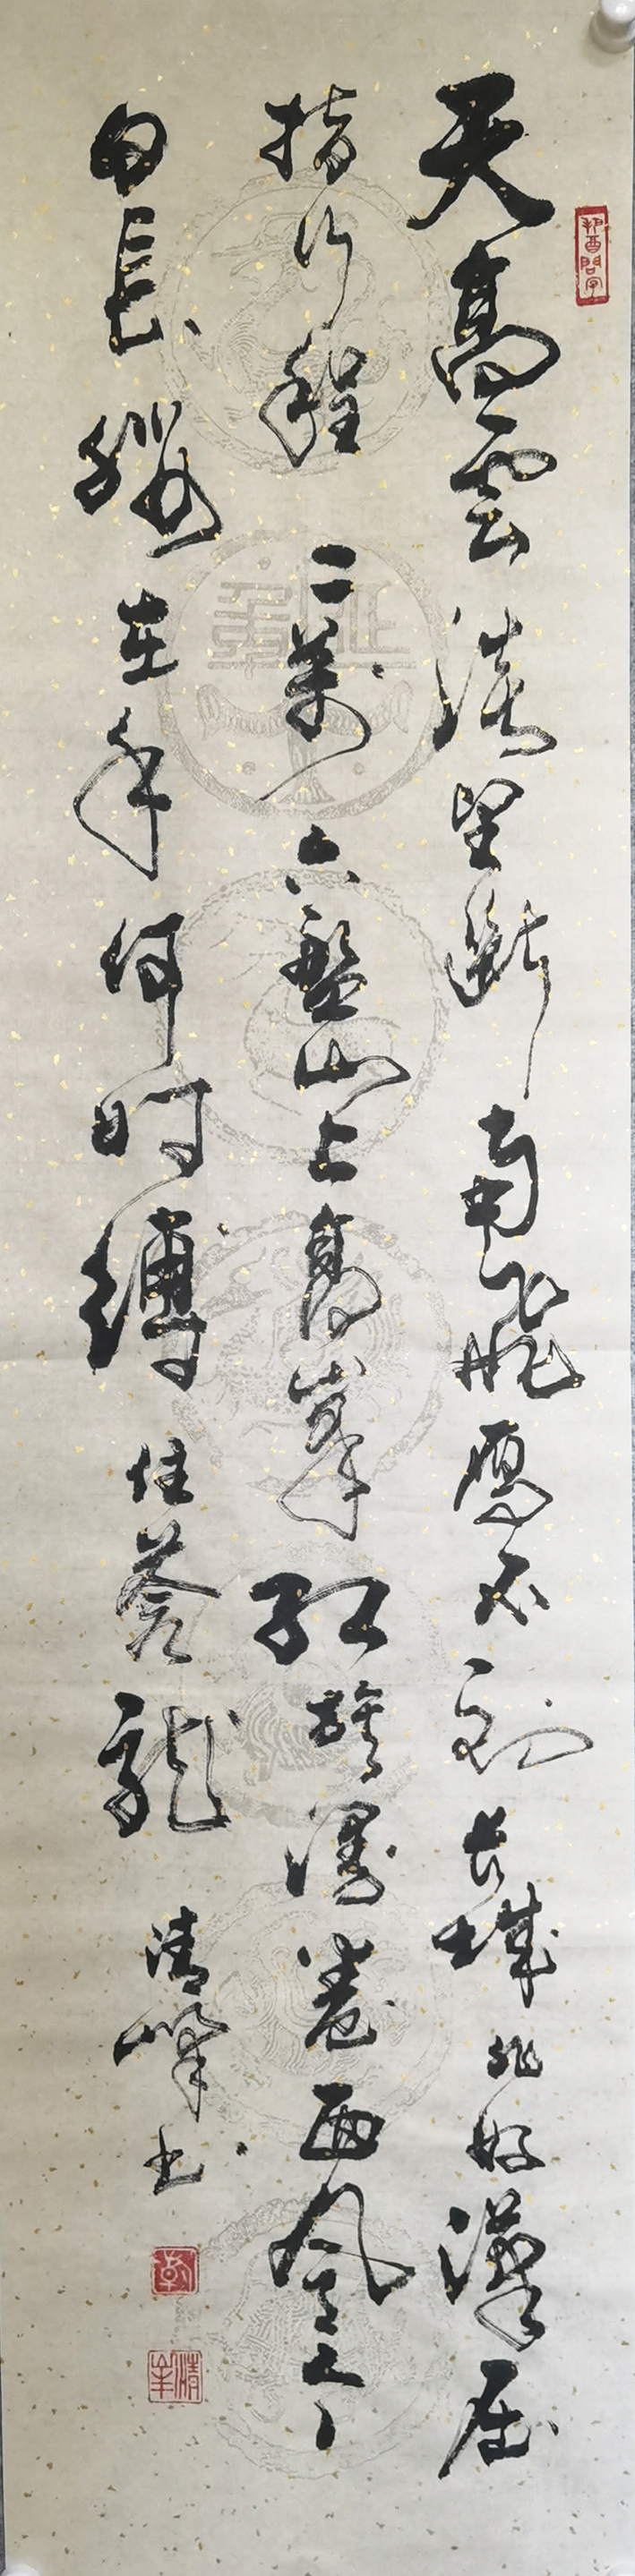 天高雲淡望斷南飛雁不到长城非好漢屈
指行程二萬六盤山上高峯紅旗漫卷西風今
日長纓在手何时縛住蒼龍 清峰书